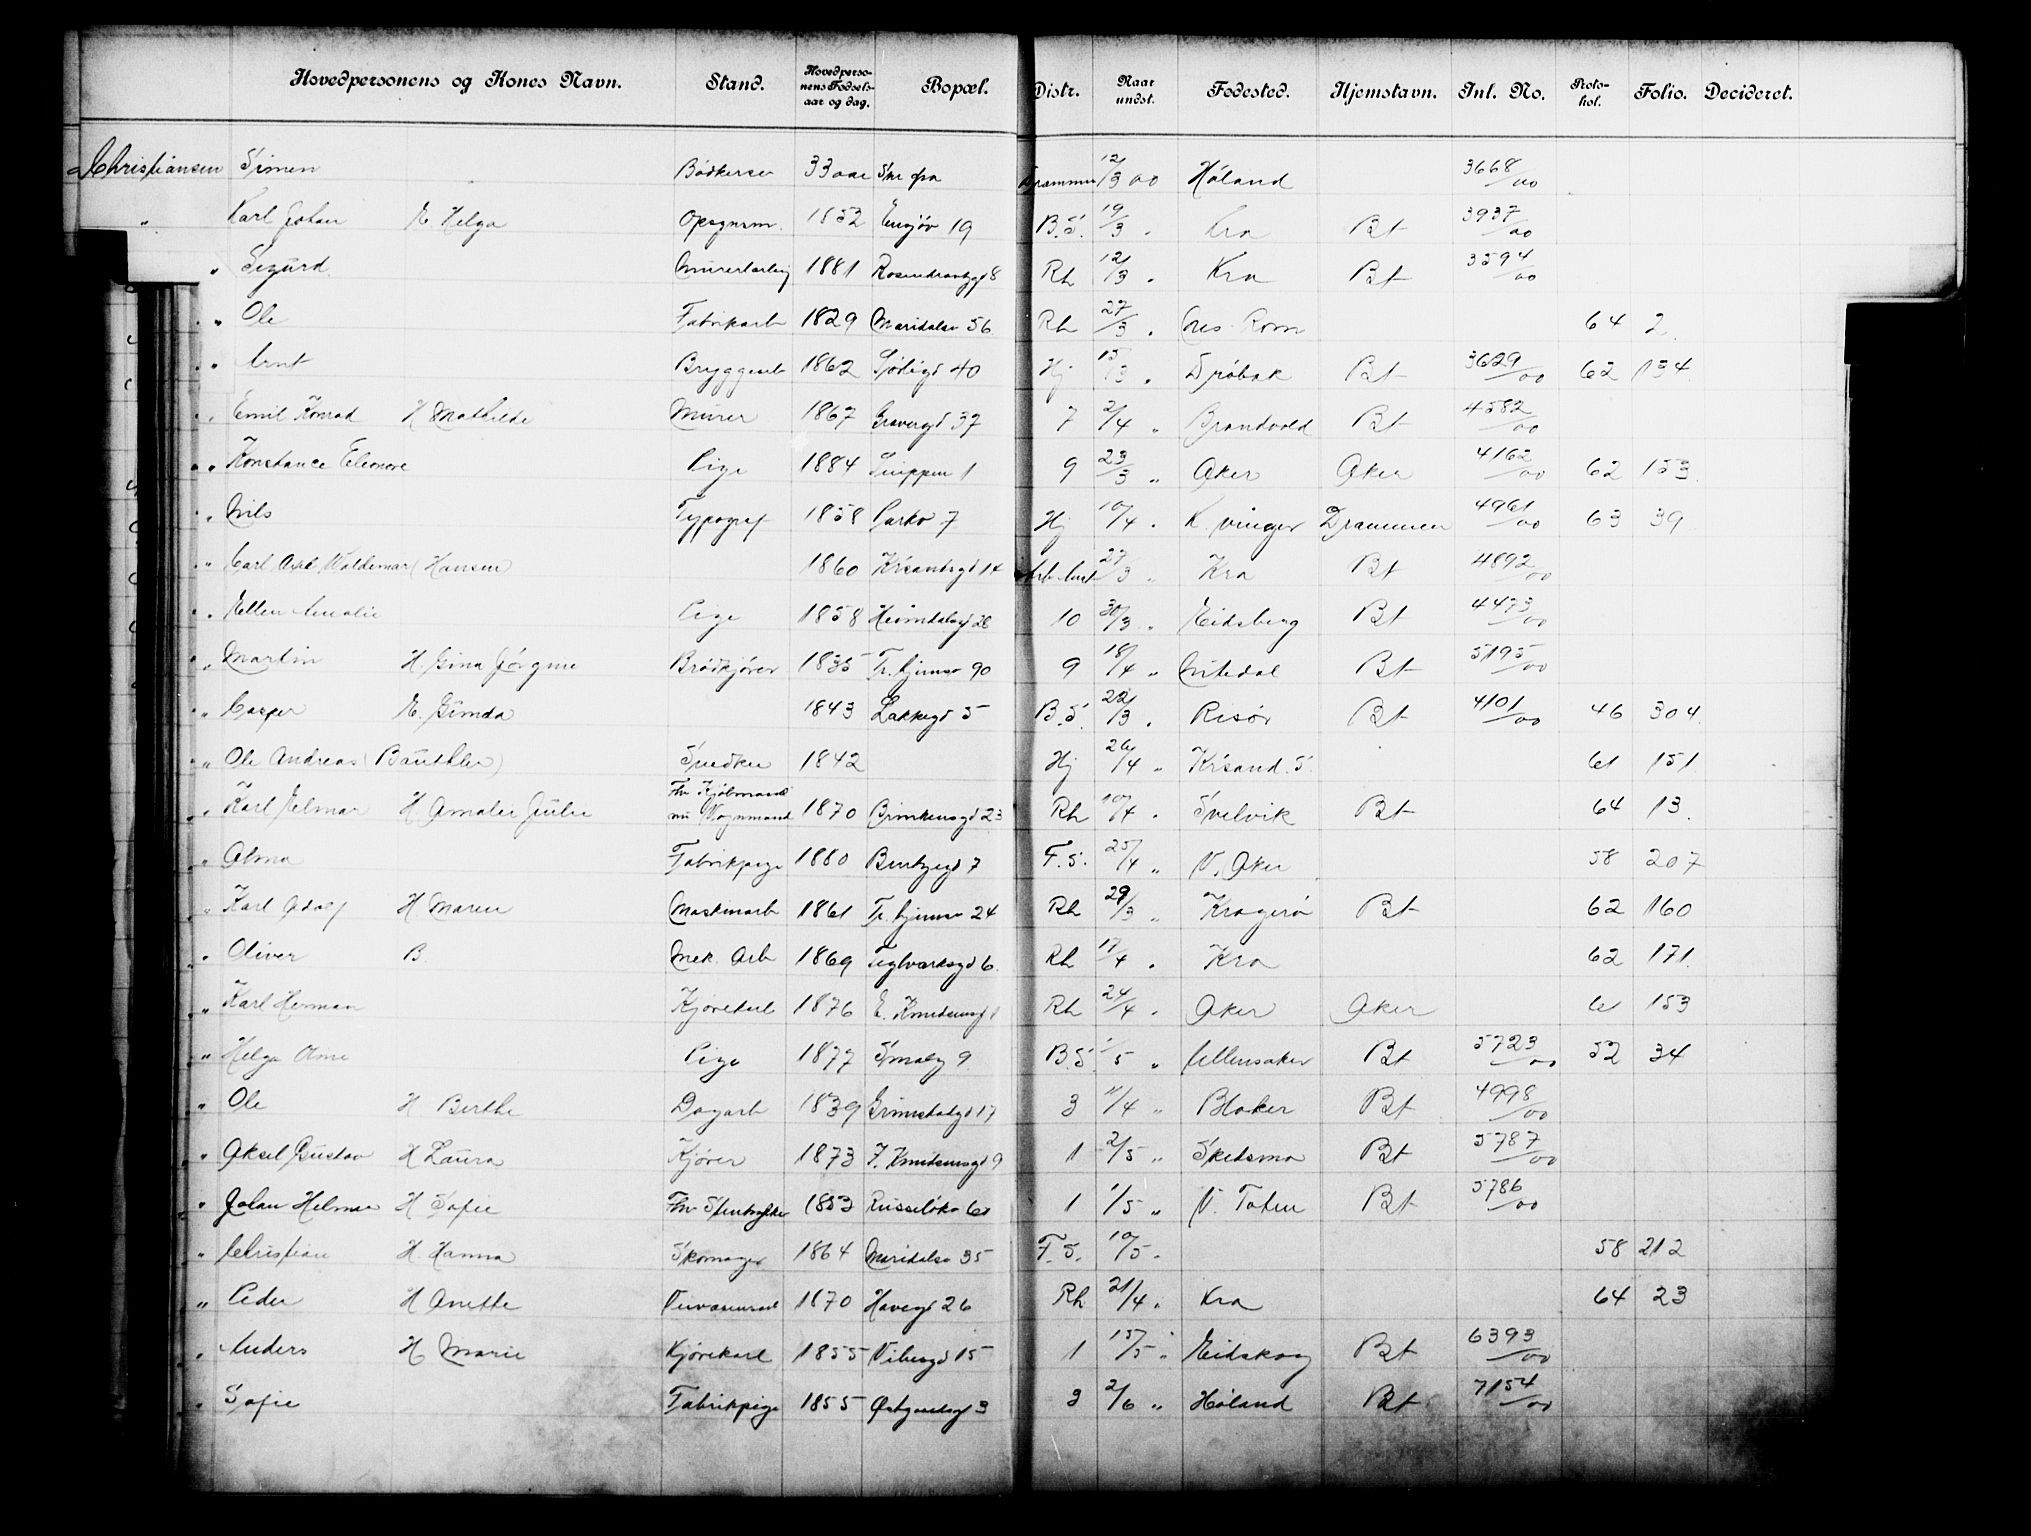 Hovedpersonens og Kones Navn. Stand. Hovedperso-nens Fødsels-aar og dag. Bopæl. Distr. Naar undst. Fødested. Hjemstavn. Inl. No. Proto-kol. Folio. Decideret.
Christiansen Simen Bødkersv 33 aar Skr fra Drammen 12/3 00 Høland 3668/00
" Karl Johan E Helga Opsynsm. 1852 Ensjøv 19 B.S. 19/3 " Kra Bt 3937/00
" Sigurd Murerlærling 1881 Rosendransgd 8 Rh 12/3 " Kra Bt 3594/00
" Ole Fabrikarb 1829 Maridalsv 56 Rh 27/3 " Nes Rom 64 2
" Arnt Bryggearb 1862 Sjøligd 40 Hj 15/3 " Drøbak Bt 3629/00 62 134
" Emil Konrad H Mathilde Murer 1867 Gravergd 37 7 2/4 " Brandvold Bt 4582/00
" Konstance Eleonore Pige 1884 Snippen 1 9 23/3 " Aker Aker 4162/00 62 153
" Nils Typograf 1858 Parkv 7 Hj 10/4 " K.vinger Drammen 4961/00 63 39
" Carl Axel Valdemar (Hansen 1860 Krsandsgd 14 Arb.Anst 27/3 " Kra Bt 4892/00
" Ellen Amalie Pige 1858 Heimdalsgd 28 10 30/3 " Eidsberg Bt 4473/00
" Martin H. Gina Jørgine Brødkjører 1835 Tr.hjemsv 90 9 18/4 " Nitedal Bt 5195/00
" Casper E. Gunda 1843 Lakkegd 5 B.S. 22/3 " Risør Bt 4101/00 46 304
" Ole Andreas (Bauthler) Snedker 1842 Hj 26/4 " Krsand. S. 61 151
" Karl Helmar H Amalie Julie Fhv Kjøbmand nu Vognmand 1870 Brinkensgd 23 Rh 10/4 " Svelvik Bt 64 13
" Alma Fabrikpige 1880 Bentzegd 7 F.S. 25/4 " V. Aker 58 207
" Karl Adolf H Maren Maskinarb 1861 Tr.hjemsv 24 Rh 29/3 " Kragerø Bt 62 160
" Oliver B. Mek. Arb 1869 Teglverksgd 6 Rh 17/4 " Kra 62 171
" Karl Herman Kjørekarl 1876 E. Knudsensgd 1 Rh 24/4 " Aker Aker 61 153
" Helga Oline Pige 1877 Smalg 9 B.S. 1/5 " Ullensaker Bt 5723/00 52 34
" Ole H Berthe Dagarb 1839 Grimstadgd 17 3 11/4 " Blaker Bt 4998/00
" Aksel Gustav H Laura Kjører 1873 F. Knudsensgd 9 1 2/5 " Skedsmo Bt 5787/00
" Johan Helmer H Sofie Fhv Stentrykker 1853 Russeløkv 60 1 1/5 " V. Toten Bt 5786/00
" Christian H. Hanna Skomager 1864 Maridalsv 35 F.S. 10/5 " 58 212
" Peder H Anette 1870 Havegd 26 Rh 21/4 " Kra 64 23
" Anders H Marie Kjørekarl 1855 Vibesgd 15 1 15/5 " Eidskog Bt 6393/00
" Sofie Fabrikpige 1855 Østgaardsgd 3 3 2/6 " Høland Bt 7154/00